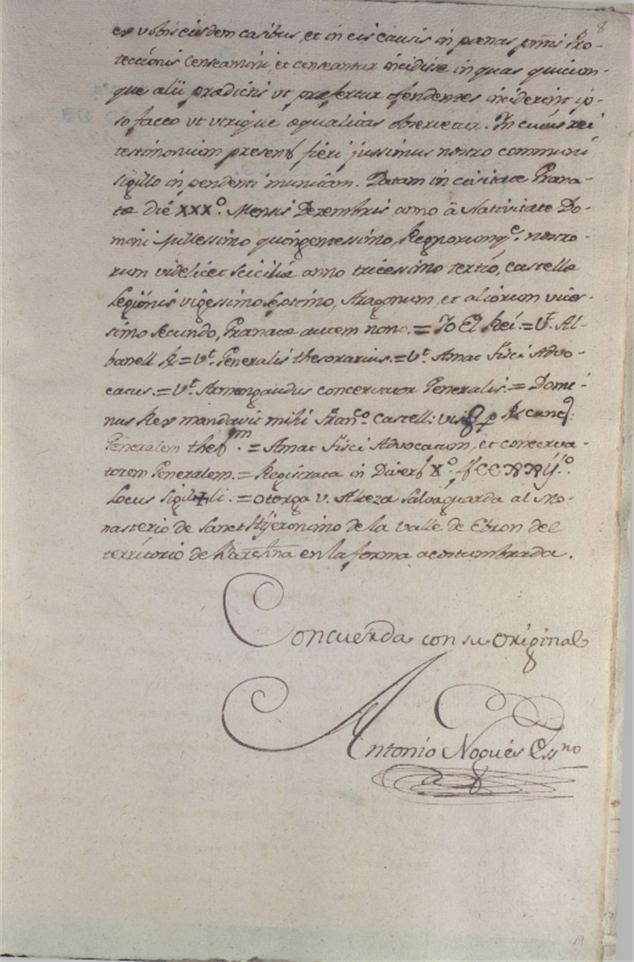 ex vobis eisdem casibus, et in eis causis in pœnas pntis Pro-
tectionis Censeamini, et censeantur incidise in quas quicun-
que alii prædicti ut præfertur ofendentes inciderint ip-
so facto ut utrique æqualitas observetur. In cuius rei
testimonium presens fieri jussimus nostro communi
sigillo in pendenti munitam. Datam in civitate Grana-
tæ die XXX.º Mensis Dezembris anno â Nativitate Do-
mini Millessimo quingentessimo, Regnorumq.e nostro-
rum videlicet Sciciliæ anno tricessimo tertio, castellæ
Legionis vigessimo septimo, Aragonum, et aliorum vices-
simo secundo, Granatæ autem nono. = Yo El Rei. = V.t Al-
banell R = V.t Generalis thesorarius. = V.t Amat Fisci Advo-
catus. = V.t Armengaudus concervator Generalis. = Domi-
nus Rex mandavit mihi Fran.co Castell: vis
Generalem thes.m = Amat Fisci Advocatum, et concerva-
torem Generalem. = Registrata in Divers. X.º
Locus Sigi✠li. = Otorga V. Alteza Salvaguarda al Mo-
nasterio de Sanct Hyeronimo de la Valle de Ebron del
territorio de Barc̃lna en la forma acostumbrada.
Concuerda con su original
Antonio Nogués Ess.no